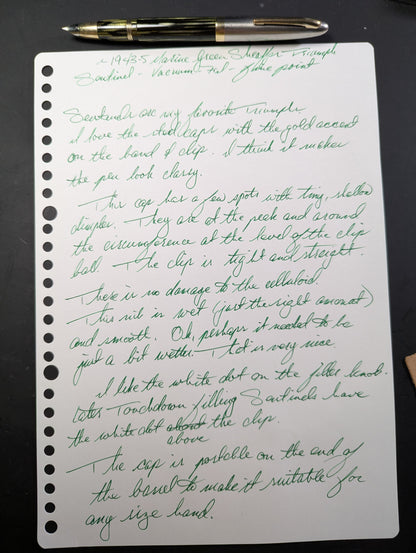 ~ 1943-5 Marine Green Sheaffer Triumph
Sentinel - Vacuum-Fil - fine point
Sentinels are my favorite Triumphs
I love the steel caps with the gold accent
on the band & clip. I think it makes
the pen look classy.
This cap has a few spots with tiny, shallow
dimples. They are at the peak and around
the circumference at the level of the clip
ball. The clip is tight and straight.
There is no damage to the celluloid.
This nib is wet (just the right amount)
and smooth. Ok, perhaps it needed to be
just a bit wetter. That is very nice
I like the white dot on the filler knob.
Later Touchdown filling Sentinels have
the white dot the clip.
above
The cap is postable on the end of
the barrel to make it suitable for
any size hand.